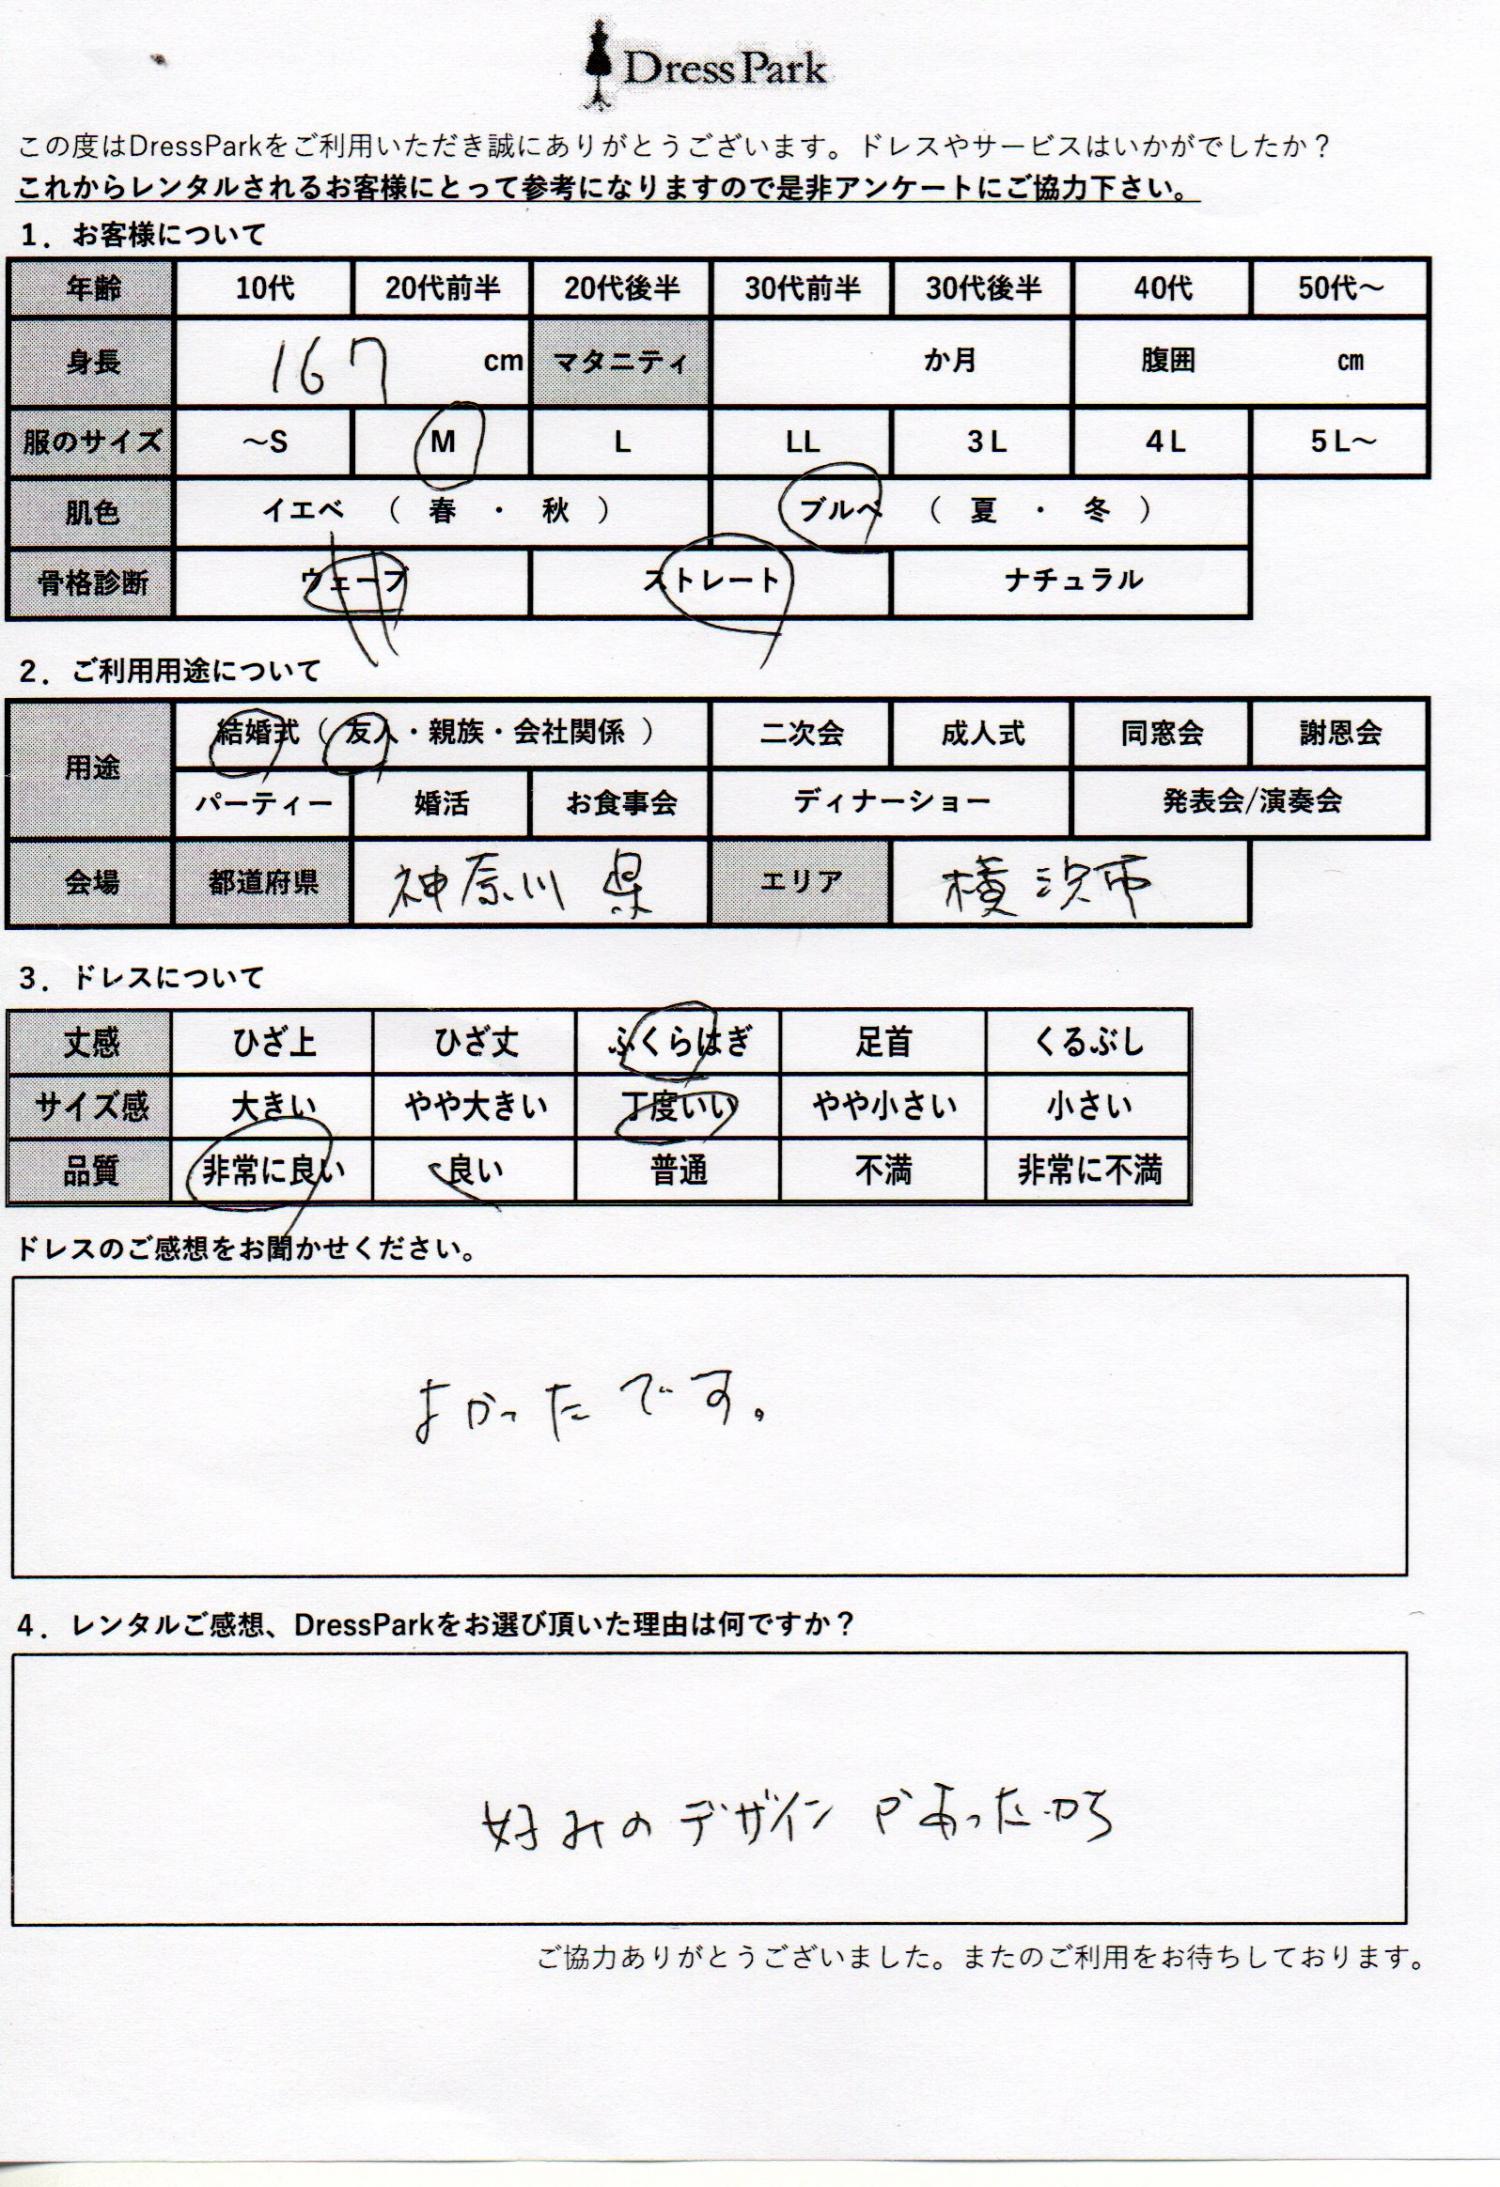 DressPark
この度はDressParkをご利用いただき誠にありがとうございます。ドレスやサービスはいかがでしたか？
これからレンタルされるお客様にとって参考になりますので是非アンケートにご協力下さい。
1．お客様について
年齢 10代 20代前半 20代後半 30代前半 30代後半 40代 50代～
身長 167 cm マタニティ か月 腹囲 ㎝
服のサイズ ～S M L LL 3L 4L 5L～
肌色 イエベ （ 春 ・ 秋 ） ブルベ （ 夏 ・ 冬 ）
骨格診断 ウェーブ ストレート ナチュラル
2．ご利用用途について
用途 結婚式（ 友人・親族・会社関係 ） 二次会 成人式 同窓会 謝恩会
パーティー 婚活 お食事会 ディナーショー 発表会/演奏会
会場 都道府県 神奈川県 エリア 横浜市
3．ドレスについて
丈感 ひざ上 ひざ丈 ふくらはぎ 足首 くるぶし
サイズ感 大きい やや大きい 丁度いい やや小さい 小さい
品質 非常に良い 良い 普通 不満 非常に不満
ドレスのご感想をお聞かせください。
よかったです。
4．レンタルご感想、DressParkをお選び頂いた理由は何ですか？
好みのデザインがあったから
ご協力ありがとうございました。またのご利用をお待ちしております。